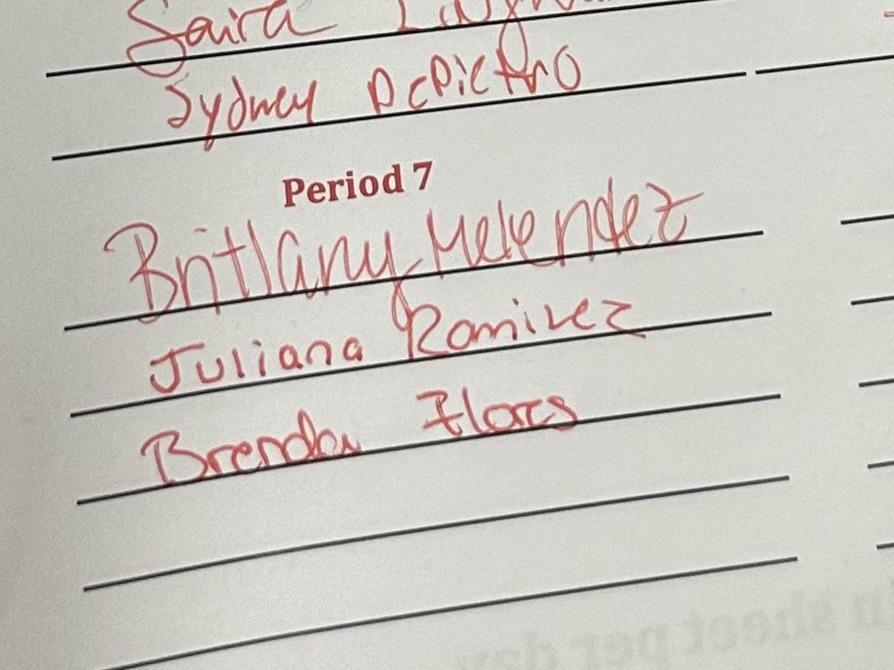 Saira
Sydney DePietro
Period 7
Brittany Melendez
Juliana Ramirez
Brenda Flores
sheet per day